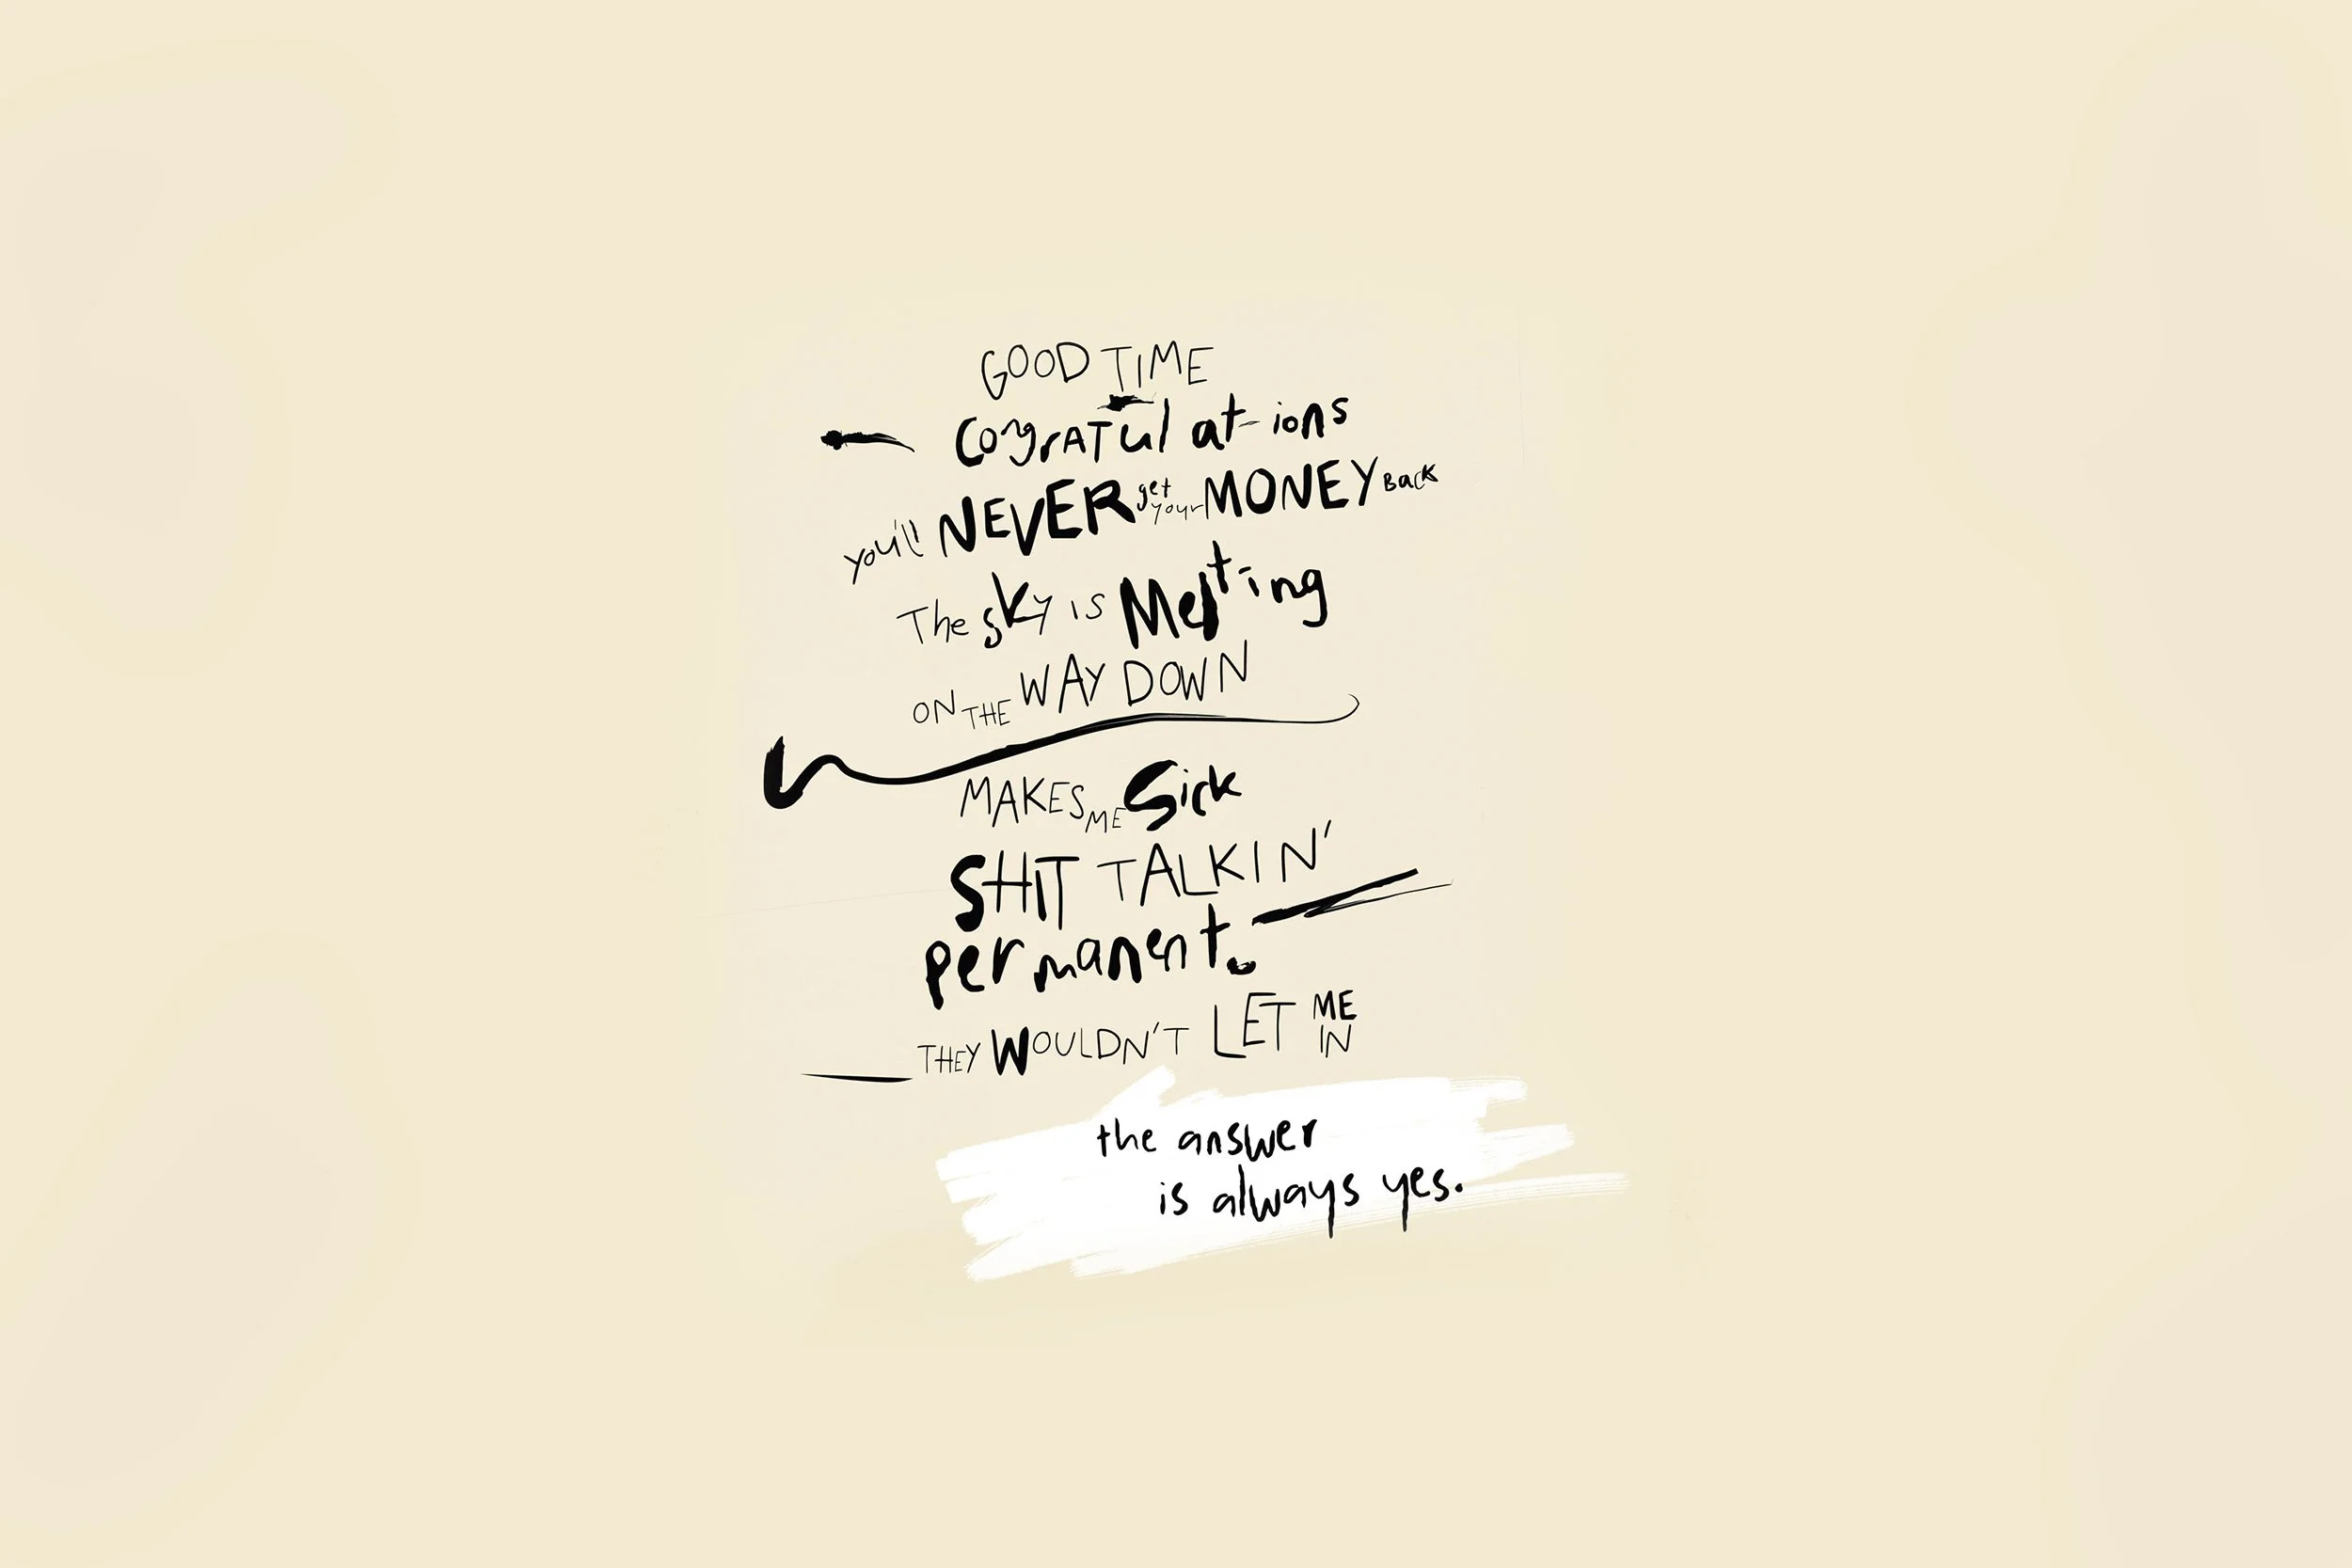 GOOD TIME
CongrATul at-ions
you'll NEVER get your MONEY Back
The sKy is Melting
ON THE WAY DOWN
MAKES ME Sick
SHIT TALKIN'
permanent.
THEY WOULDN'T LET ME IN
the answer
is always yes.